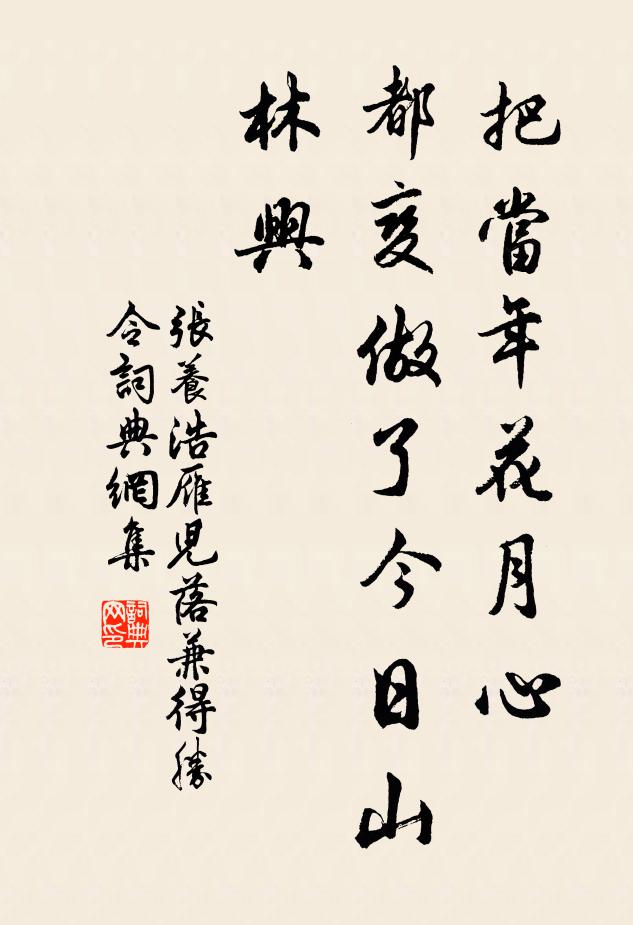 把當年花月心
都变做了今日山
林興
張養浩雁児落兼得勝
令詞典網集
詞典网印